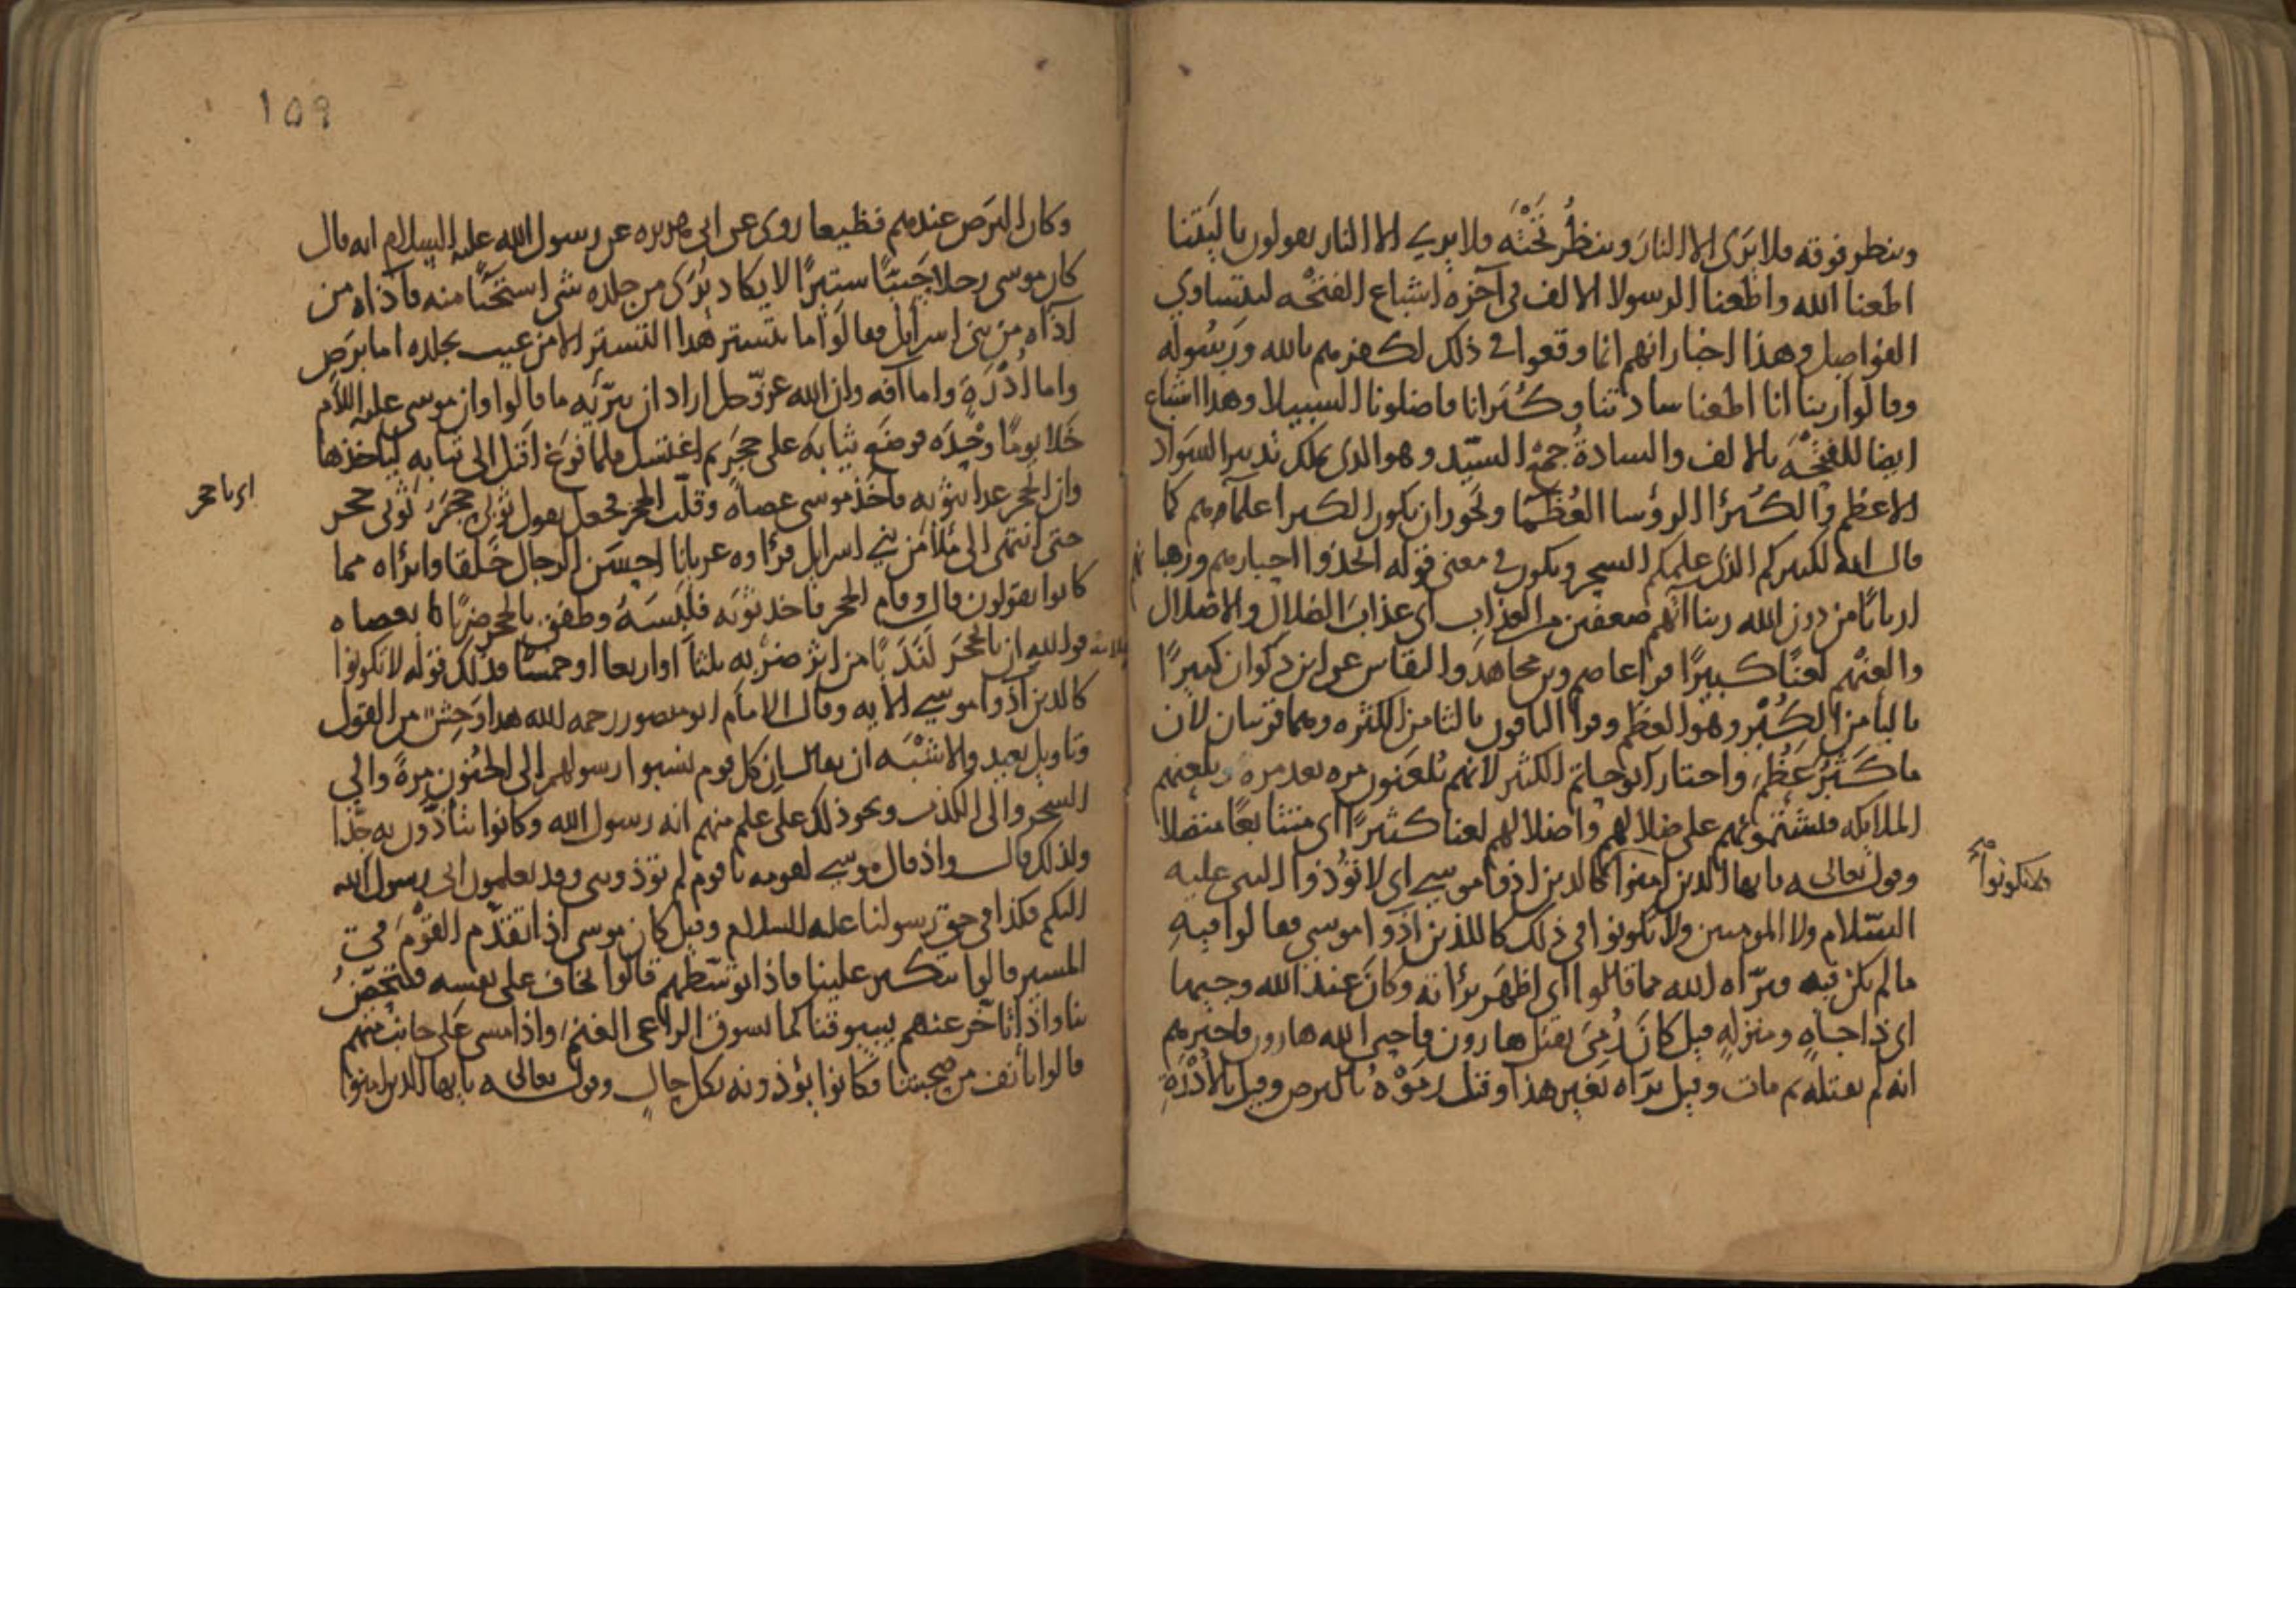 وينظر فوقه فلا يرى الا النار وينظر تحته فلا يرى الا النار يقولون يا ليتنا
اطعنا الله واطعنا الرسولا الالف في آخره اشباع الفتحه ليتساوي
الفواصل وهذا اخبار انهم انما وقعوا في ذلك لكفرهم بالله ورسوله
وقالوا ربنا انا اطعنا سادتنا وكبرانا فاضلونا السبيلا وهذا اشباع
ايضا للفتحه بالالف والسادة جمع السيد وهو الذي يملك تدبير السواد
الاعظم والكبرا الرؤسا العظما ويجوز ان يكون الكبرا علماهم كما
قال انه لكبيركم الذي علمكم السحر ويكون في معنى قوله اتخذوا احبارهم ورهبانهم
اربابا من دون الله ربنا آتهم ضعفين من العذاب اى عذاب الضلال والاضلال
والعنهم لعنا كبيرا قرا عاصم وبن مجاهد والنقاش عن ابن ذكوان كبيرا
بالبا من الكبر وهو العظم وقرا الباقون بالثا من الكثره وهما قريبان لان
ما كثر عظم واختار ابو حاتم الكثير لانهم يلعنون مره بعد مره ويلعنهم
الملايكه فلشتمونهم على ضلالهم واضلالهم لعنا كثيرا اى متتابعا متصلا
وقوله تعالى يا يها الذين امنوا كالذين اذوا موسى اى لا تؤذوا النبى عليه
السلام ولا المومنين ولا تكونوا في ذلك كاللذين آذوا موسى فقالوا فيه
ما لم يكن فيه فبراه الله مما قالوا اى اظهر براته وكان عند الله وجيها
اى ذا جاه ومنزله قيل كان رمى بقتل هارون فاحيى الله هارون فاخبرهم
انه لم يقتله ثم مات وقيل براه بغير هذا وقيل رموه بالبرص وقيل بالادرة
ولا تكونوا
١٥٩
وكان البرص عندهم فظيعا روى عن ابى هريره عن رسول الله عليه السلام انه قال
كان موسى رجلا حييا ستيرا لا يكاد يرى من جلده شى استحيا منه فآذاه من
آذاه من بنى اسرايل فقالوا ما يتستر هذا التستر الا من عيب بجلده اما برص
واما ادرة واما آفه وان الله عز وجل اراد ان يبرئه مما قالوا وان موسى عليه السلام
خلا يوما وحده فوضع ثيابه على حجر ثم اغتسل فلما فرغ اقبل الى ثيابه لياخذها
وان الحجر عدا بثوبه فاخذ موسى عصاه وطلب الحجر فجعل يقول ثوبى حجر ثوبى حجر
اى يا حجر
حتى انتهى الى ملا من بني اسرايل فراوه عريانا احسن الرجال خلقا وابراه مما
كانوا يقولون قال وقام الحجر فاخذ ثوبه فلبسه وطفق بالحجر ضربا بعصاه
فوالله ان بالحجر لندبا من اثر ضربه ثلثا او اربعا او خمسا فذلك قوله لا تكونوا
كالذين آذوا موسى الايه وقال الامام ابو منصور رحمه الله هذا وحش من القول
وتاويل بعيد والاشبه ان يقال ان كل قوم نسبوا رسولهم الى الجنون مرة والي
السحر والى الكذب ونحو ذلك على علم منهم انه رسول الله وكانوا يتاذون به جدا
ولذلك قال واذ قال موسى لقومه يا قوم لم تؤذونى وقد تعلمون انى رسول الله
اليكم فكذا في حق رسولنا عليه السلام وقيل كان موسى اذا تقدم القوم فى
المسير قالوا يتكبر علينا فاذا توسطهم قالوا يخاف على نفسه فيتحصن
بنا واذا تآخر عنهم يسوقنا كما يسوق الراعى الغنم واذا مشى على جانب منهم
قالوا يأنف من صحبتنا فكانوا يؤذونه بكل حال وقوله تعالى يا يها الذين امنوا